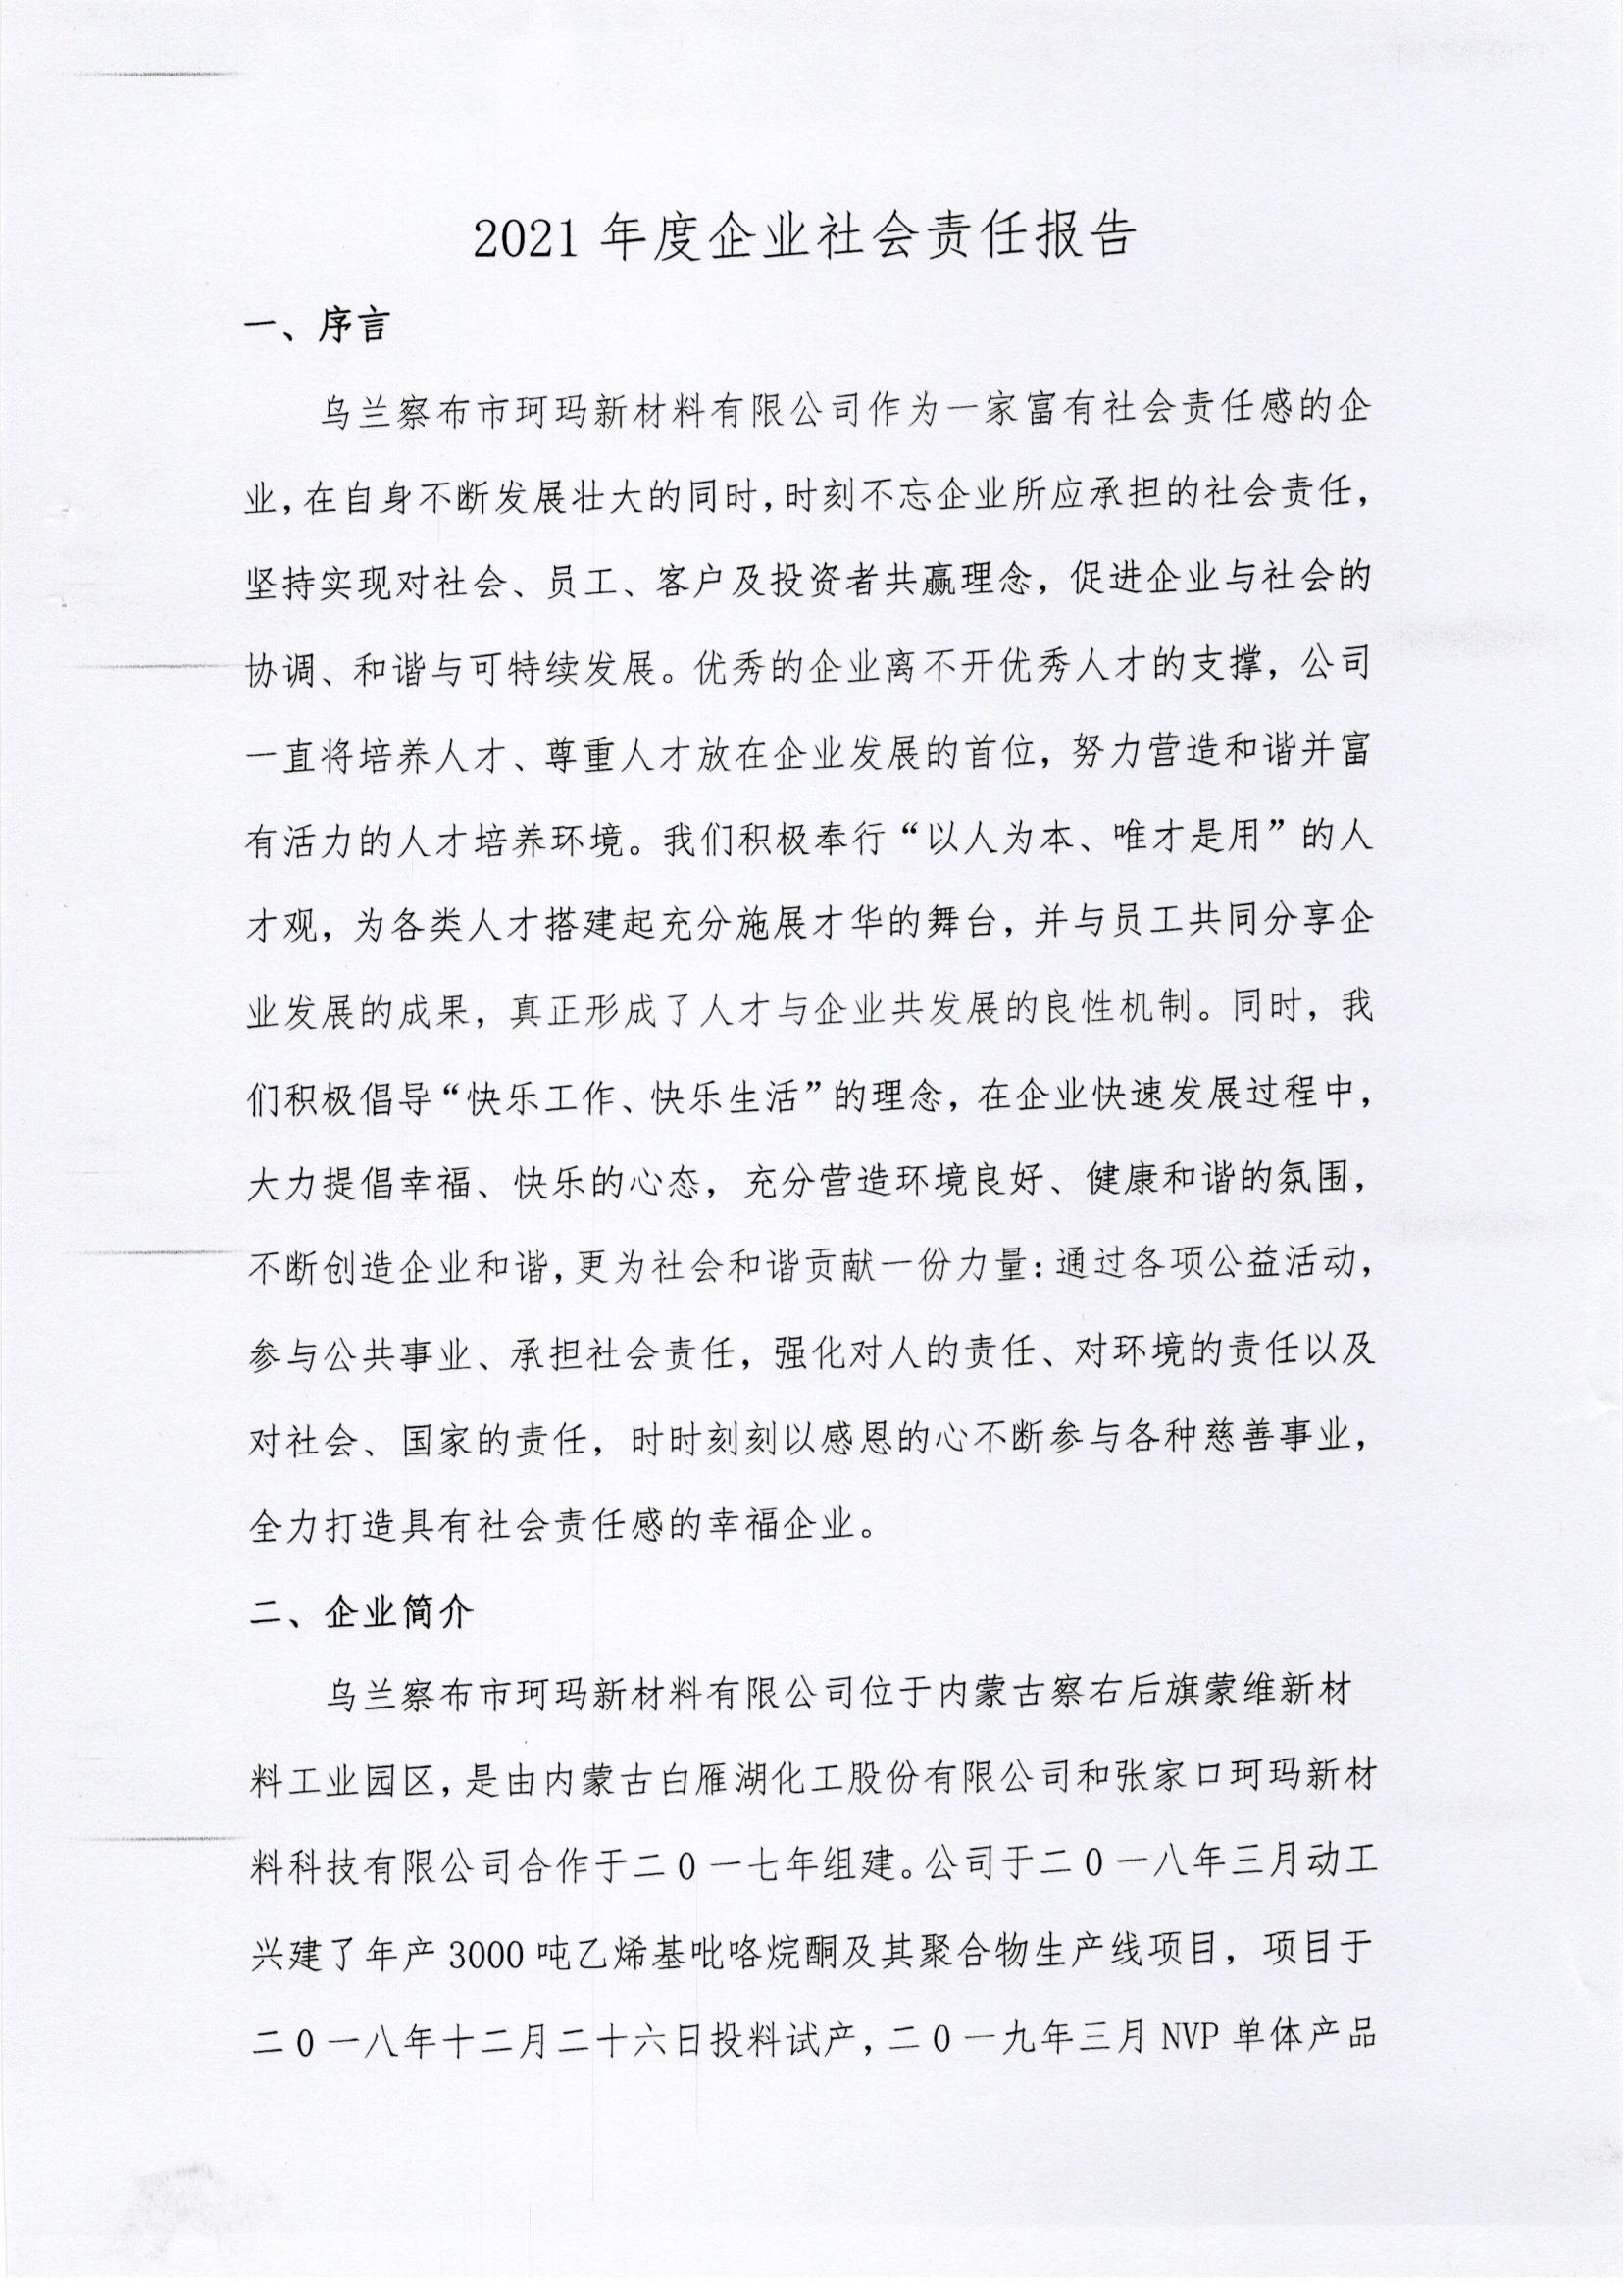 2021 年度企业社会责任报告
一、序言
乌兰察布市珂玛新材料有限公司作为一家富有社会责任感的企
业，在自身不断发展壮大的同时，时刻不忘企业所应承担的社会责任，
坚持实现对社会、员工、客户及投资者共赢理念，促进企业与社会的
协调、和谐与可持续发展。优秀的企业离不开优秀人才的支撑，公司
一直将培养人才、尊重人才放在企业发展的首位，努力营造和谐并富
有活力的人才培养环境。我们积极奉行“以人为本、唯才是用”的人
才观，为各类人才搭建起充分施展才华的舞台，并与员工共同分享企
业发展的成果，真正形成了人才与企业共发展的良性机制。同时，我
们积极倡导“快乐工作、快乐生活”的理念，在企业快速发展过程中，
大力提倡幸福、快乐的心态，充分营造环境良好、健康和谐的氛围，
不断创造企业和谐，更为社会和谐贡献一份力量：通过各项公益活动，
参与公共事业、承担社会责任，强化对人的责任、对环境的责任以及
对社会、国家的责任，时时刻刻以感恩的心不断参与各种慈善事业，
全力打造具有社会责任感的幸福企业。
二、企业简介
乌兰察布市珂玛新材料有限公司位于内蒙古察右后旗蒙维新材
料工业园区，是由内蒙古白雁湖化工股份有限公司和张家口珂玛新材
料科技有限公司合作于二0一七年组建。公司于二0一八年三月动工
兴建了年产 3000 吨乙烯基吡咯烷酮及其聚合物生产线项目，项目于
二0一八年十二月二十六日投料试产，二0一九年三月 NVP 单体产品